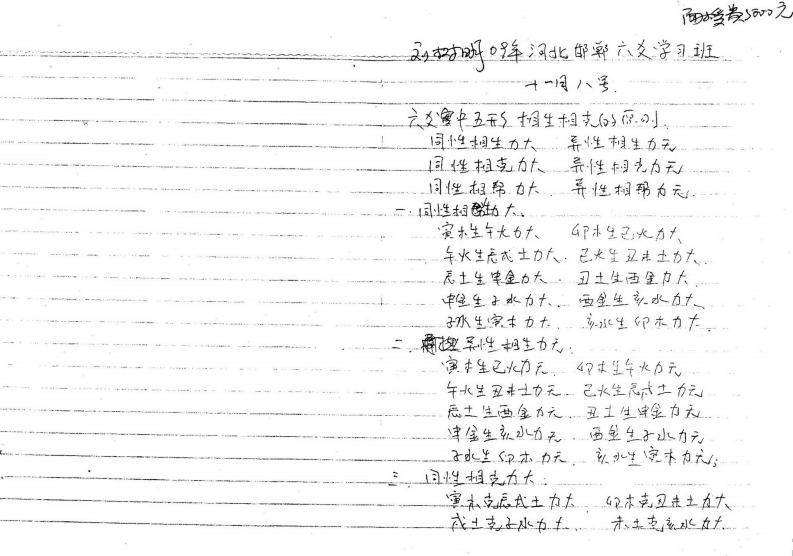 面授费5000元
刘树明09年河北邯郸六爻学习班
十一月八号.
六爻中五行相生相克的原则.
同性相生力大、 异性相生力无
同性相克力大、 异性相克力无
同性相帮力大、 异性相帮力无.
一. 同性相生力大、
寅木生午火力大、 卯木生巳火力大、
午火生辰戌土力大、 巳火生丑未土力大、
辰土生申金力大、 丑土生酉金力大、
申金生子水力大、 酉金生亥水力大、
子水生寅木力大、 亥水生卯木力大、
二、 异性相生力无:
寅木生巳火力无、 卯木生午火力无
午火生丑未土力无、 巳火生辰戌土力无
辰土生酉金力无、 丑土生申金力无
申金生亥水力无、 酉金生子水力无
子水生卯木力无、 亥水生寅木力无;
三、 同性相克力大:
寅木克辰戌土力大、 卯木克丑未土力大、
戌土克子水力大、 未土克亥水力大.